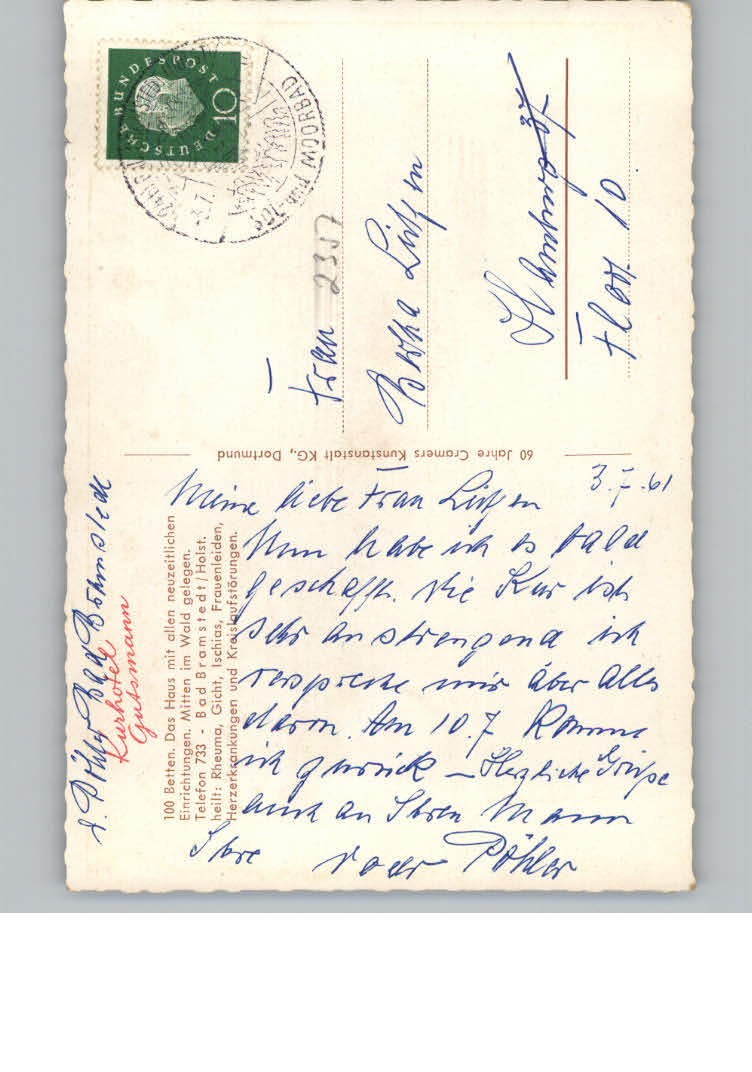 Meine liebe Frau
3.7.61
Nun habe ich es bald
geschafft. Die Kur ist
sehr anstrengend ich
verspreche mir aber alles
davon. Am 10.7 komme
ich zurück – Herzliche Grüße
auch an Ihren Mann
Ihre Pöhler
Pöhler Bad Bramstedt
Kurhotel
Gutsmann
100 Betten. Das Haus mit allen neuzeitlichen
Einrichtungen. Mitten im Wald gelegen.
Telefon 733 - Bad Bramstedt/Holst.
heilt: Rheuma, Gicht, Ischias, Frauenleiden,
Herzerkrankungen und Kreislaufstörungen.
60 Jahre Cramers Kunstanstalt KG., Dortmund
Frau
Hamburg
10
2357
DEUTSCHE BUNDESPOST
10
MOORBAD